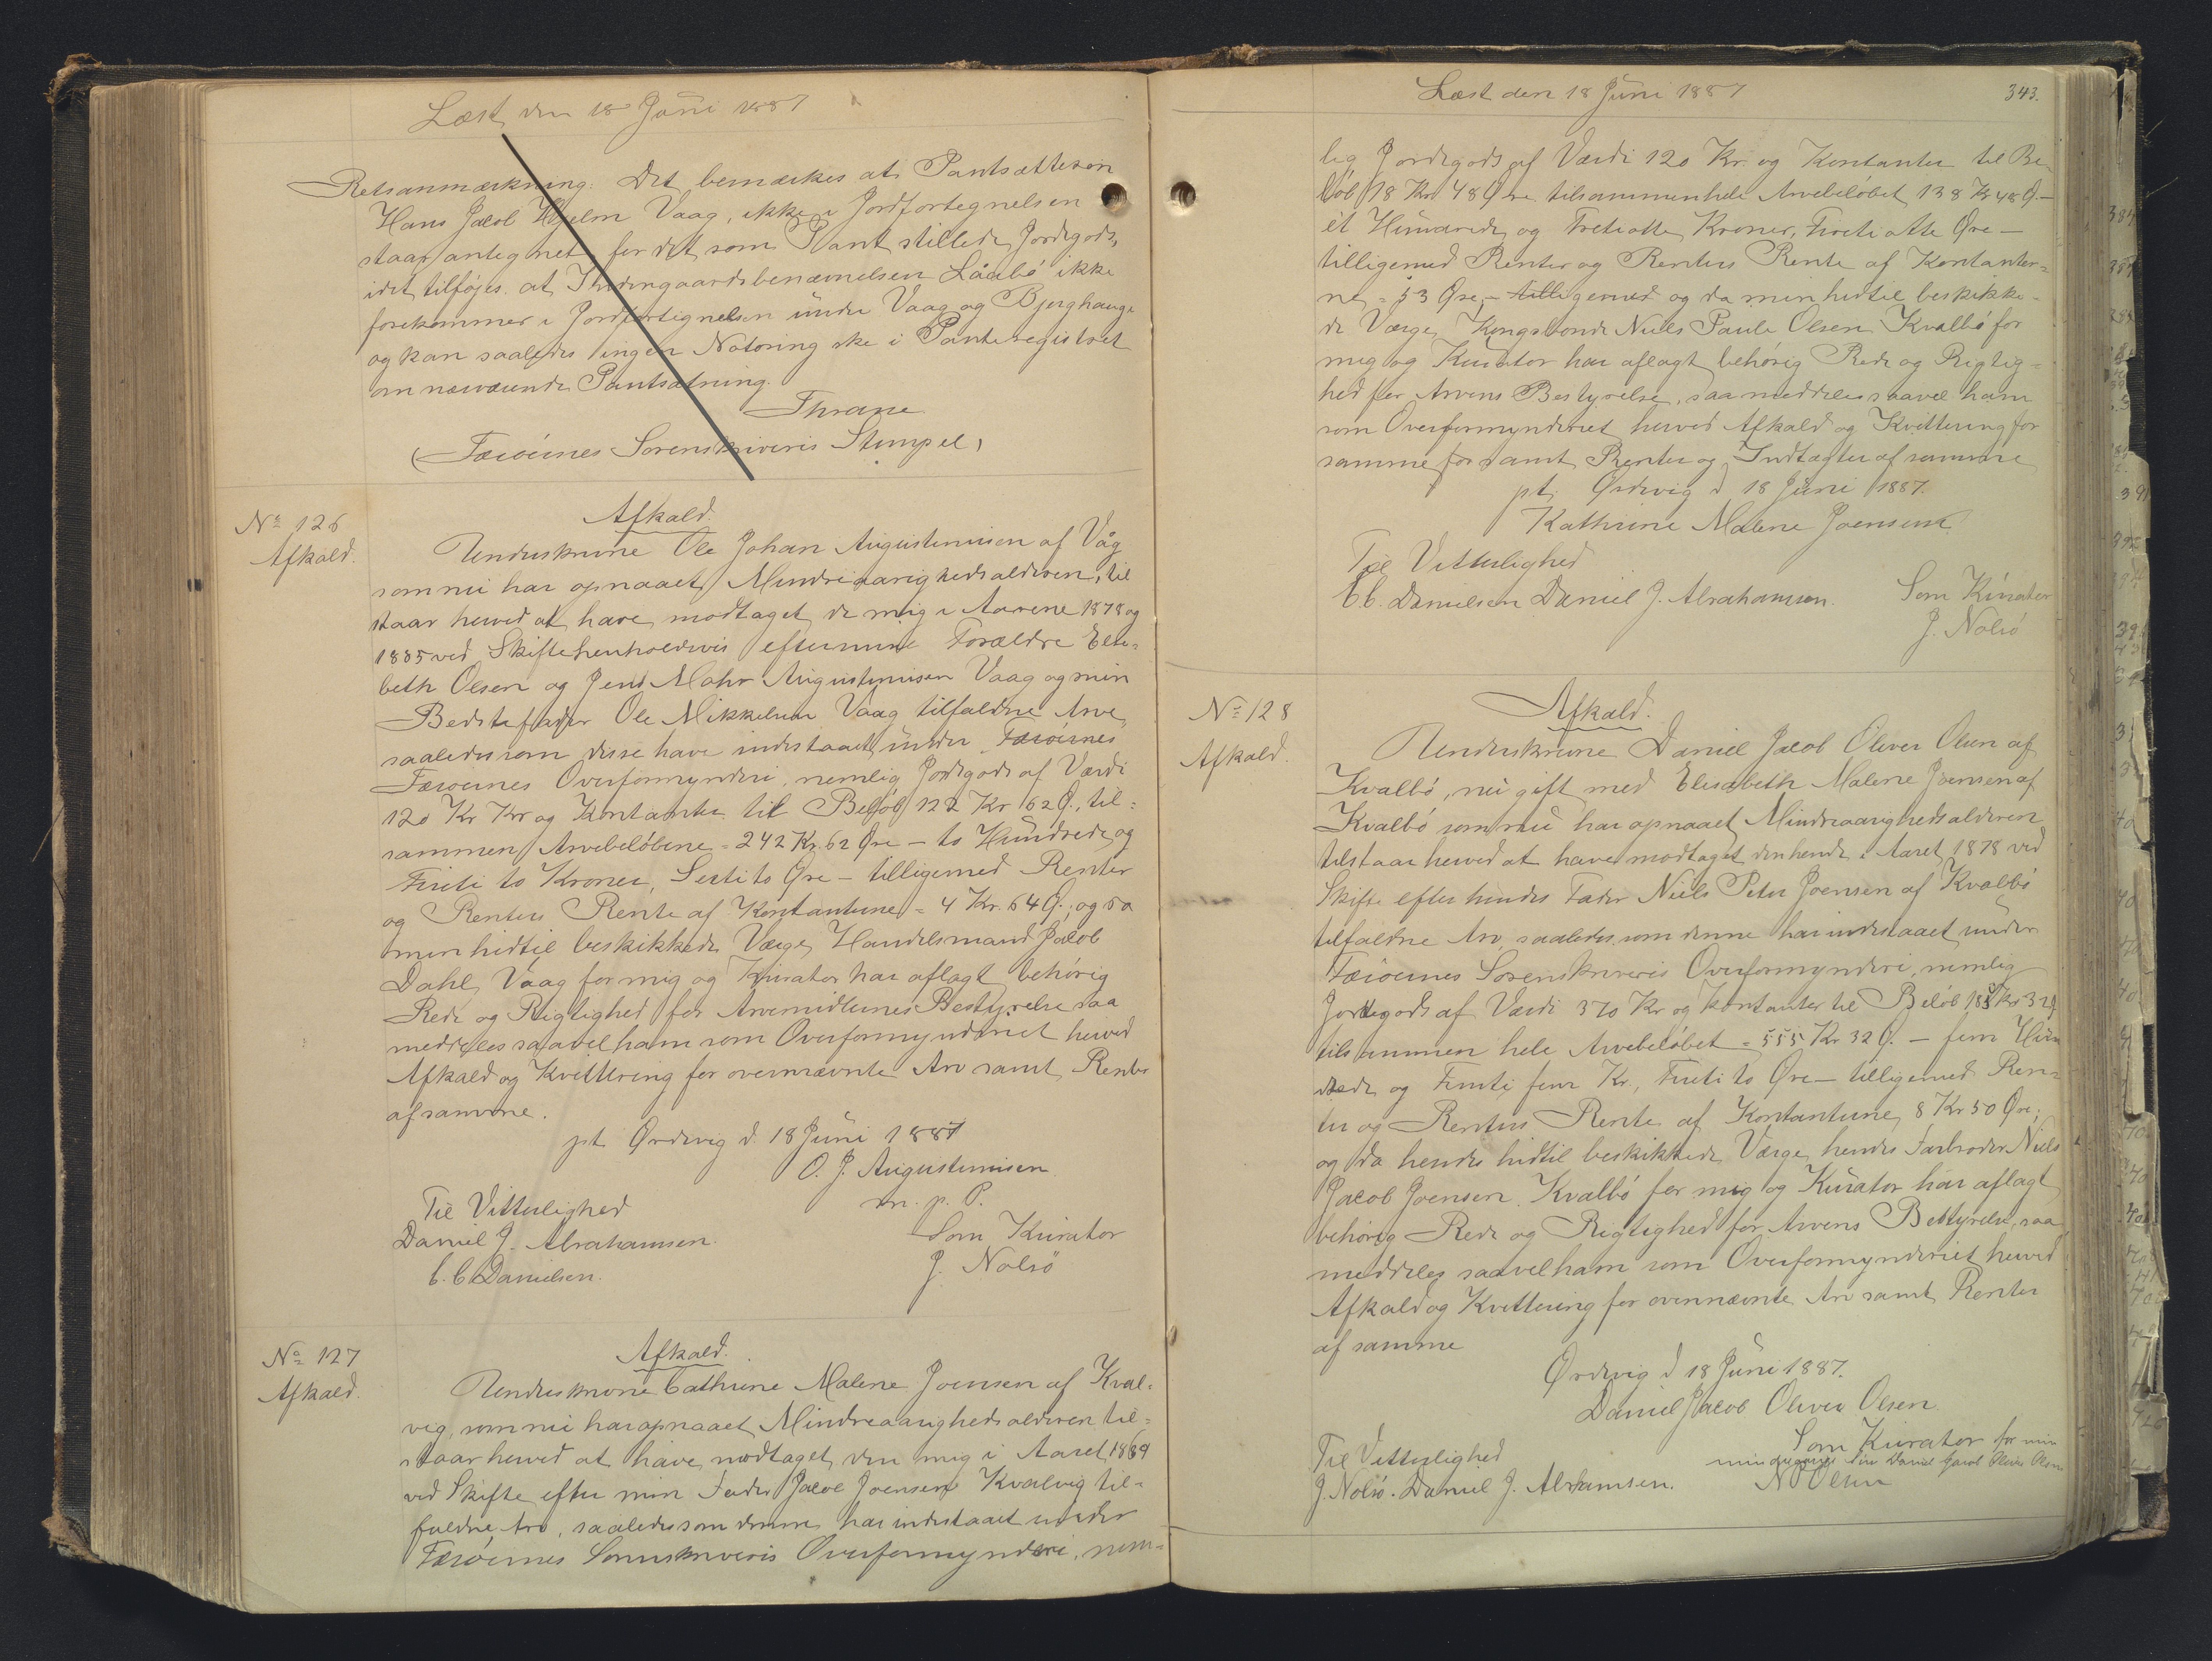 Læst den 18 Juni 1887
Retsanmærkning: Det bemærkes at Pantsætteren
Hans Jacob Hjelm Vaag, ikke i Jordfortegnelsen
staar antegnet for det som Pant stillede Jordegods,
idet tilføjes at Indengaardsbenævnelsen Låabø ikke
forekommer i Jordfortegnelsen under Vaag og Bjerghauge
og kan saaledes ingen Notering ske i Panteregistret
om nærværende Pantsætning.
Thrane
(Færøernes Sorenskriveris Stempel)
No 126
Afkald.
Afkald.
Underskrevne Ole Johan Augustinusen af Våg
som nu har opnaaet Mindreaarighedsalderen, til
staar herved at have modtaget de mig i Aarene 1878 og
1885 ved Skifte henholdsvis efter mine Forældre Else-
beth Olsen og Jens Mohr Augustinusen Vaag og min
Bedstefader Ole Mikkelsen Vaag tilfaldne Arve,
saaledes som disse have indestaaet under Færøernes
Færøernes Overformynderi, nemlig Jordegods af Værdi
120 Kr Kr og Kontanter til Beløb 122 Kr 62 Ø., til-
sammen Arvebeløbene = 242 Kr. 62 Øre - to Hundrede og
Firti to Kroner, Sexti to Øre - tilligemed Renter
og Renters Rente af Kontanterne = 4 Kr. 64 Ø.; og da
min hidtil beskikkede Værge, Handelsmand Jacob
Dahl, Vaag for mig og Kurator har aflagt behørig
Rede og Rigtighed for Arvemidlernes Bestyrelse saa
meddeles saavel ham som Overformynderiet herved
Afkald og Kvittering for overnævnte Arv samt Renter
af samme.
pt. Ørdevig d. 18 Juni 1887
O. J. Augustinusen
m. p. P.
Til Vitterlighed
Daniel J. Abrahamsen.
C. C. Danielsen.
Som Kurator
J. Nolsø
No 127
Afkald.
Afkald.
Underskrevne Cathrine Malene Joensen af Kval-
vig, som nu har opnaaet Mindreaarighedsalderen til-
staar herved at have modtaget den mig i Aaret 1869
ved Skifte efter min Fader Jacob Joensen Kvalvig til-
faldne Arv, saaledes som denne har indestaaet under
Færøernes Sorenskriveris Overformynderi, nem-
Læst den 18 Juni 1887
343.
lig Jordegods af Værdi 120 Kr. og Kontanter til Be-
løb 18 Kr 48 Øre tilsammen hele Arvebeløbet 138 Kr 48 Ø. -
ét Hundrede og Treti otte Kroner, Firti otte Øre -
tilligemed Renter og Renters Rente af Kontanter-
ne = 53 Øre, - tilligemed og da min hidtil beskikke-
de Værge, Kongsbonde Niels Paule Olsen Kvalbø for
mig og Kurator har aflagt behørig Rede og Rigtig-
hed for Arvens Bestyrelse, saa meddeles saavel ham
som Overformynderiet herved Afkald og Kvittering for
samme for samt Renter og Indtægter af samme
pt. Ørdevig d 18 Juni 1887.
Kathrine Malene Joensen
Til Vitterlighed
C. C. Danielsen Daniel J. Abrahamsen.
Som Kurator
J. Nolsø
No 128
Afkald.
Afkald.
Underskrevne Daniel Jacob Oliver Olsen af
Kvalbø, nu gift med Elisabeth Malene Joensen af
Kvalbø som nu har opnaaet Mindreaarighedsalderen
tilstaar herved at have modtaget den hende i Aaret 1878 ved
Skifte efter hendes Fader Niels Peter Joensen af Kvalbø
tilfaldne Arv, saaledes som denne har indestaaet under
Færøernes Sorenskriveris Overformynderi, nemlig
Jordegods af Værdi 370 Kr og Kontanter til Beløb 185 Kr 32 Ø
tilsammen hele Arvebeløbet = 555 Kr 32 Ø. - fem Hun
drede og Femti fem Kr., Treti to Øre - tilligemed Ren-
ter og Renters Rente af Kontanterne, 8 Kr 50 Øre;
og da hendes hidtil beskikkede Værge, hendes Farbroder Niels
Jacob Joensen Kvalbø for mig og Kurator har aflagt
behørig Rede og Rigtighed for Arvens Bestyrelse, saa
meddeles saavel ham som Overformynderiet herved
Afkald og Kvittering for overnævnte Arv samt Renter
af samme
Ørdevig d 18 Juni 1887.
Daniel Jacob Oliver Olsen.
Til Vitterlighed
J. Nolsø. Daniel J. Abrhamsen.
Som Kurator for min
Søn Daniel Jacob Oliver Olsen
N P Olsen